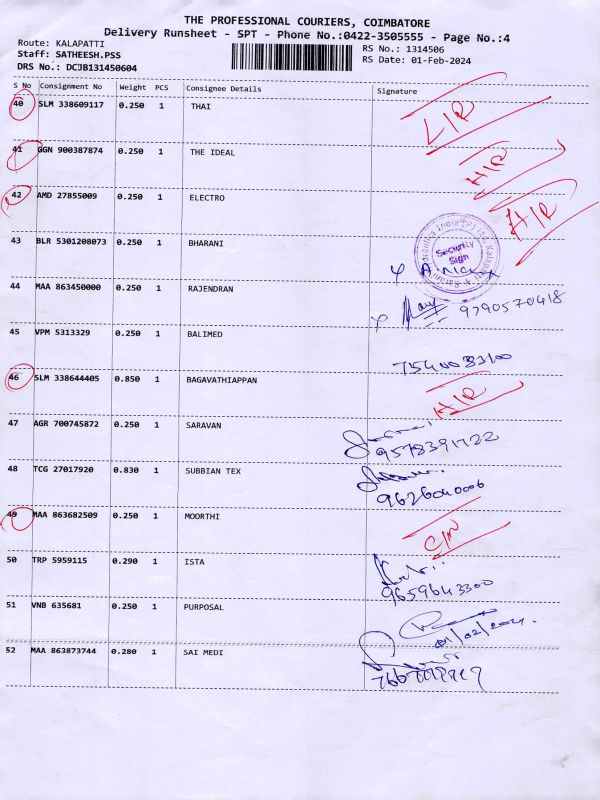 THE PROFESSIONAL COURIERS, COIMBATORE
Delivery Runsheet - SPT - Phone No.:0422-3505555 - Page No.:4
Route: KALAPATTI
RS No.: 1314506
Staff: SATHEESH.PSS
RS Date: 01-Feb-2024
DRS No.: DCJB131450604
S No Consignment No Weight PCS Consignee Details Signature
40 SLM 338609117 0.250 1 THAI
41 GGN 900387874 0.250 1 THE IDEAL
H/R
42 AMD 27855009 0.250 1 ELECTRO
H/R
Security
Sign
43 BLR 5301208073 0.250 1 BHARANI
44 MAA 863450000 0.250 1 RAJENDRAN
9790570418
45 VPM 5313329 0.250 1 BALIMED
7540083100
46 SLM 338644405 0.850 1 BAGAVATHIAPPAN
H/R
47 AGR 700745872 0.250 1 SARAVAN
9578391722
48 TCG 27017920 0.830 1 SUBBIAN TEX
9626040006
49 MAA 863682509 0.250 1 MOORTHI
50 TRP 5959115 0.290 1 ISTA
9659643300
51 VNB 635681 0.250 1 PURPOSAL
01/02/2024
52 MAA 863873744 0.280 1 SAI MEDI